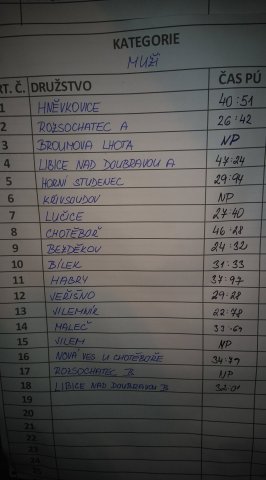 KATEGORIE
MUŽI
RT. Č. DRUŽSTVO ČAS PÚ
1 HNĚVKOVICE 40:51
2 ROZSOCHATEC A 26:42
3 BROUMOVA LHOTA NP
4 LIBICE NAD DOUBRAVOU A 47:24
5 HORNÍ STUDENEC 29:94
6 KŘIVSOUDOV NP
7 LUČICE 27:40
8 CHOTĚBOŘ 46:28
9 BEZDĚKOV 24:32
10 BÍLEK 31:33
11 HABRY 37:97
12 VEŘIŠNO 29:28
13 VILEMNÍR 22:78
14 MALEČ
15 VILEM NP
16 NOVÁ VES U CHOTĚBOŘE 34:79
17 ROZSOCHATEC B NP
18 LIBICE NAD DOUBRAVOU B
19
20
21
22
23
24